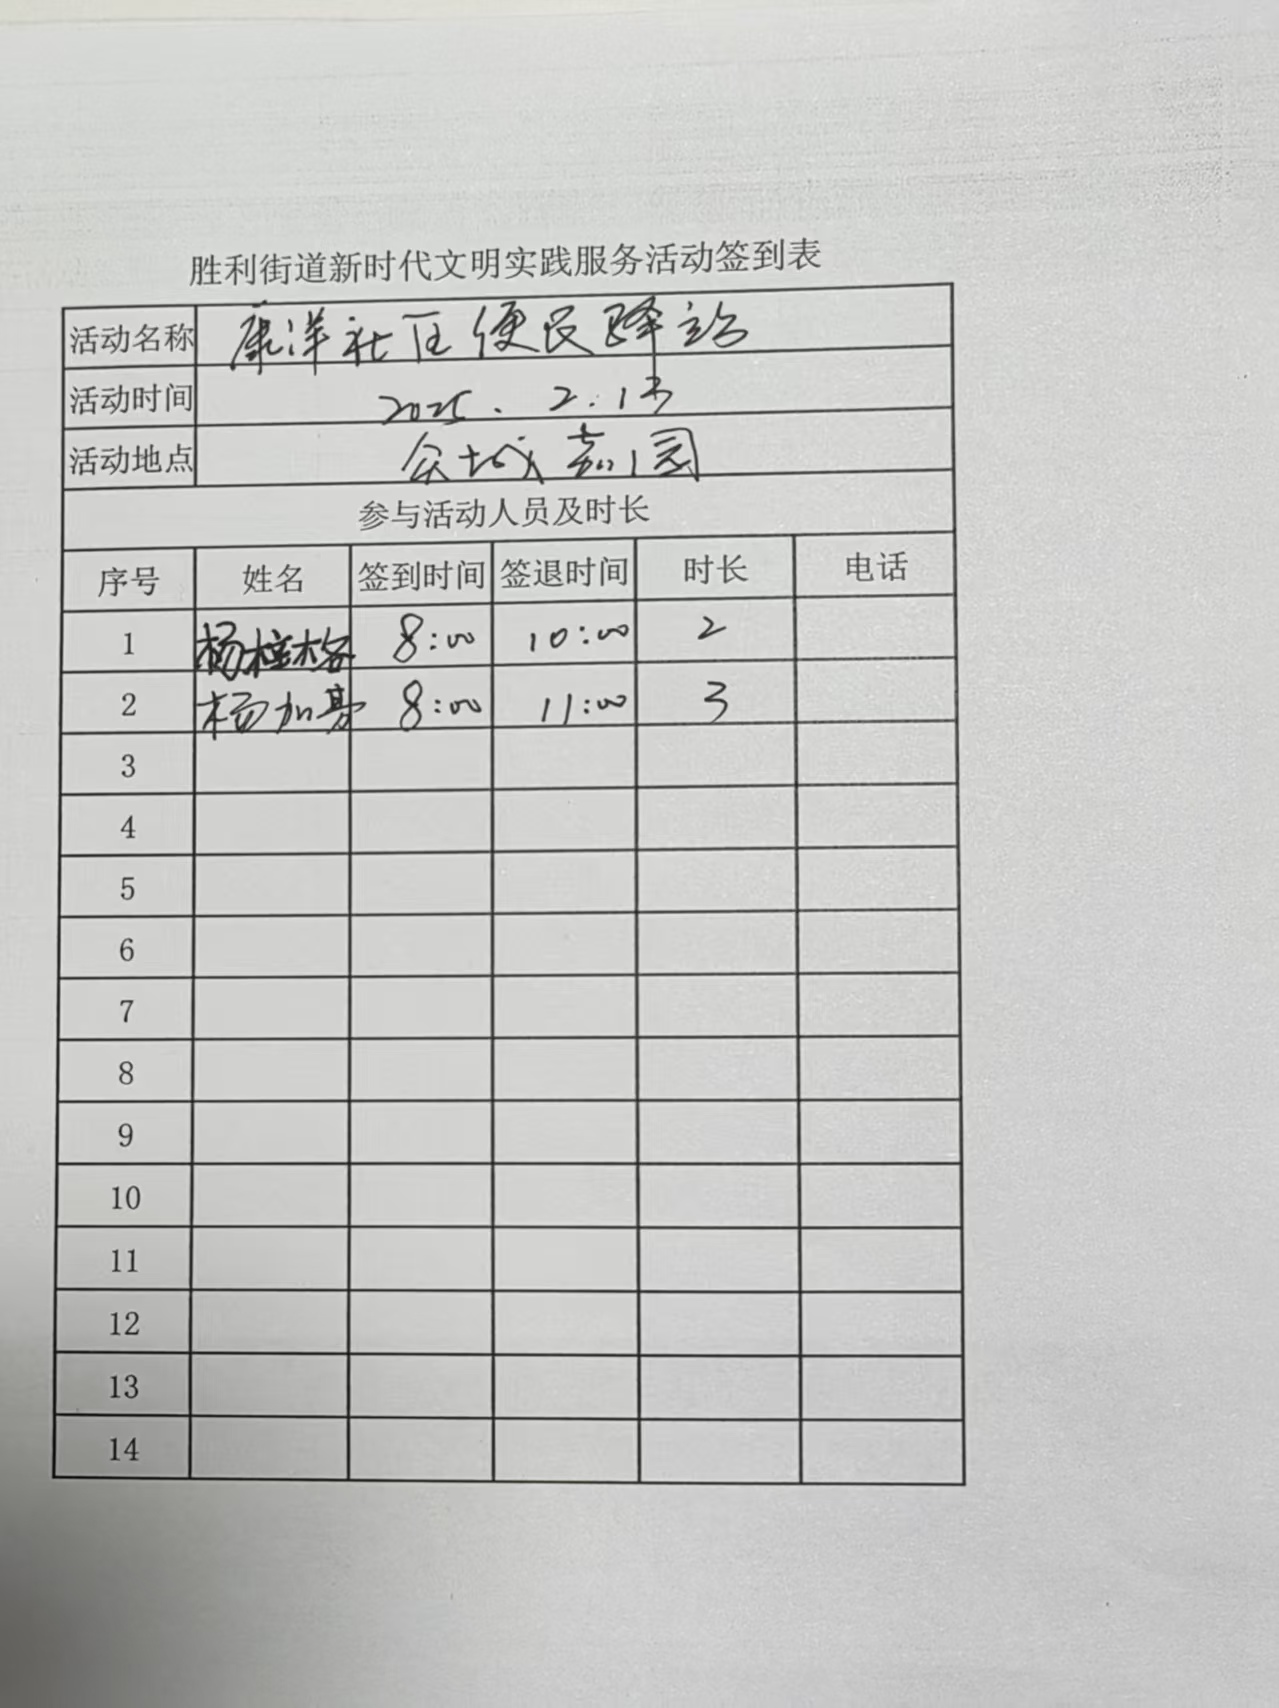 胜利街道新时代文明实践服务活动签到表
活动名称 康洋社区便民驿站
活动时间 2025.2.13
活动地点 众城嘉园
参与活动人员及时长
序号 姓名 签到时间 签退时间 时长 电话
1 杨桂格 8:00 10:00 2
2 杨加 8:00 11:00 3
3
4
5
6
7
8
9
10
11
12
13
14